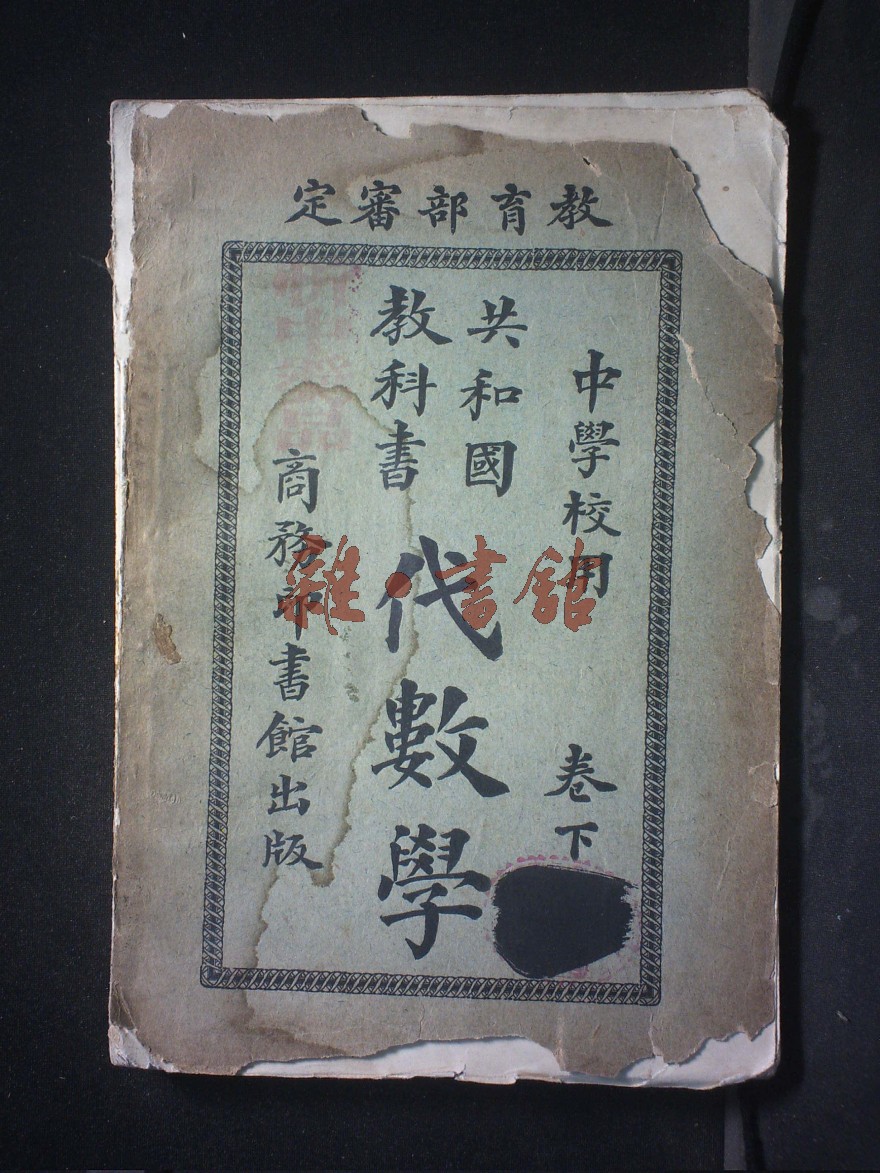 教育部審定
中學校用
卷下
共和國
教科書
代數學
商務印書館出版
雜·書館